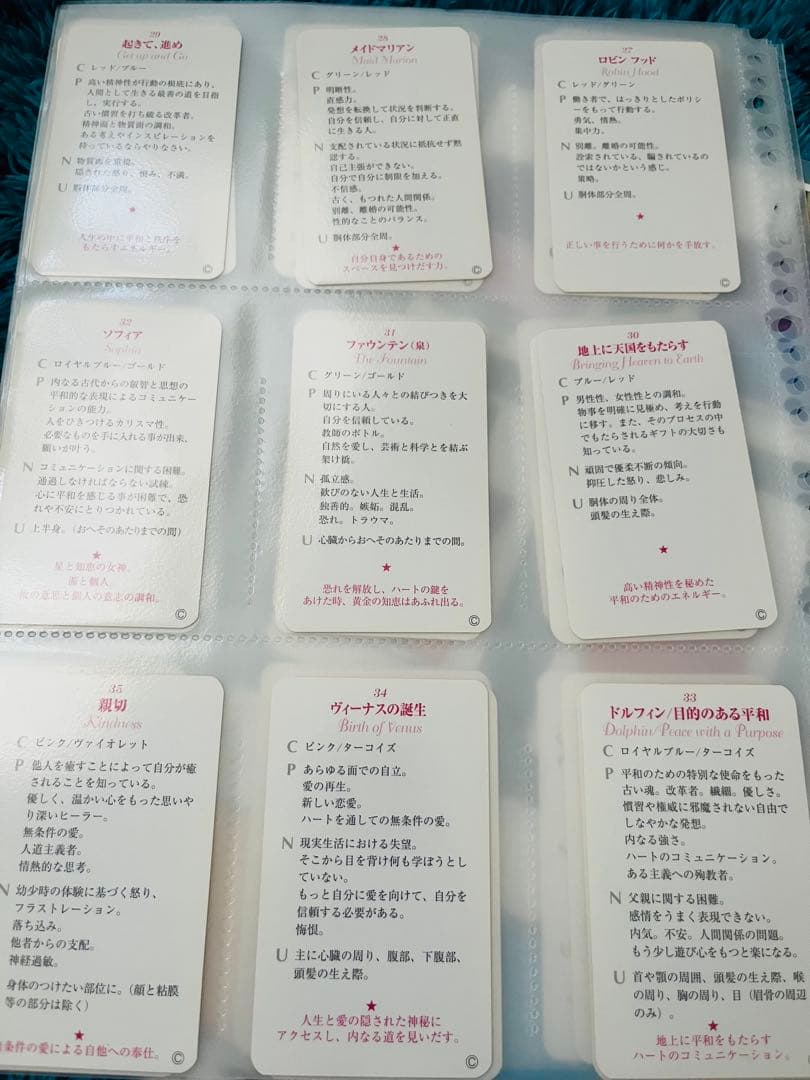 29
起きて、進め
Get up and Go
C レッド/ブルー
P 高い精神性が行動の根底にあり、
人間として生きる最善の道を目指
し、実行する。
古い慣習を打ち破る改革者。
精神面と物質面の調和。
ある考えやインスピレーションを
持っているならやりなさい。
N 物質面を重視。
隠された怒り、恨み、不満。
U 胴体部分全周。
★
人生の中に平和と秩序を
もたらすエネルギー。
©
28
メイドマリアン
Maid Marion
C グリーン/レッド
P 明晰性。
直感力。
発想を転換して状況を判断する。
自分を信頼し、自分に対して正直
に生きる人。
N 支配されている状況に抵抗せず黙
認する。
自己主張ができない。
自分で自分に制限を加える。
不信感。
古く、もつれた人間関係。
別離、離婚の可能性。
性的なことのバランス。
U 胴体部分全周。
★
自分自身であるための
スペースを見つけだす力。
©
27
ロビン フッド
Robin Hood
C レッド/グリーン
P 働き者で、はっきりとしたポリシ
ーをもって行動する。
勇気、情熱。
集中力。
N 別離、離婚の可能性。
設索されている、騙されているの
ではないかという感じ。
策略。
U 胴体部分全周。
★
正しい事を行うために何かを手放す。
©
32
ソフィア
Sophia
C ロイヤルブルー/ゴールド
P 内なる古代からの叡智と思想の
平和的な表現によるコミュニケー
ションの能力。
人をひきつけるカリスマ性。
必要なものを手に入れる事が出来、
願いが叶う。
N コミュニケーションに関する困難。
通過しなければならない試練。
心に平和を感じる事が困難で、恐
れや不安にとりつかれている。
U 上半身。（おへそのあたりまでの間）
★
星と知恵の女神。
面と個人。
の意思と個人の意志の調和。
©
31
ファウンテン（泉）
The Fountain
C グリーン/ゴールド
P 周りにいる人々との結びつきを大
切にする人。
自分を信頼している。
教師のボトル。
自然を愛し、芸術と科学とを結ぶ
架け橋。
N 孤立感。
歓びのない人生と生活。
独善的。嫉妬。混乱。
恐れ。トラウマ。
U 心臓からおへそのあたりまでの間。
★
恐れを解放し、ハートの鍵を
あけた時、黄金の知恵はあふれ出る。
©
30
地上に天国をもたらす
Bringing Heaven to Earth
C ブルー/レッド
P 男性性、女性性との調和。
物事を明確に見極め、考えを行動
に移す。また、そのプロセスの中
でもたらされるギフトの大切さも
知っている。
N 頑固で優柔不断の傾向。
抑圧した怒り、悲しみ。
U 胴体の周り全体。
頭髪の生え際。
★
高い精神性を秘めた
平和のためのエネルギー。
©
35
親切
Kindness
C ピンク/ヴァイオレット
P 他人を癒すことによって自分が癒
されることを知っている。
優しく、温かい心をもった思いや
り深いヒーラー。
無条件の愛。
人道主義者。
情熱的な思考。
N 幼少時の体験に基づく怒り、
フラストレーション。
落ち込み。
他者からの支配。
神経過敏。
身体のつけたい部位に。（顔と粘膜
等の部分は除く）
★
条件の愛による自他への奉仕。
©
34
ヴィーナスの誕生
Birth of Venus
C ピンク/ターコイズ
P あらゆる面での自立。
愛の再生。
新しい恋愛。
ハートを通しての無条件の愛。
N 現実生活における失望。
そこから目を背け何も学ぼうとし
ていない。
もっと自分に愛を向けて、自分を
信頼する必要がある。
悔恨。
U 主に心臓の周り、腹部、下腹部、
頭髪の生え際。
★
人生と愛の隠された神秘に
アクセスし、内なる道を見いだす。
©
33
ドルフィン/目的のある平和
Dolphin/Peace with a Purpose
C ロイヤルブルー/ターコイズ
P 平和のための特別な使命をもった
古い魂。改革者。繊細。優しさ。
慣習や権威に邪魔されない自由で
しなやかな発想。
内なる強さ。
ハートのコミュニケーション。
ある主義への殉教者。
N 父親に関する困難。
感情をうまく表現できない。
内気。不安。人間関係の問題。
もう少し遊び心をもつと楽になる。
U 首や顎の周囲、頭髪の生え際、喉
の周り、胸の周り、目（眉骨の周辺
のみ）。
★
地上に平和をもたらす
ハートのコミュニケーション。
©